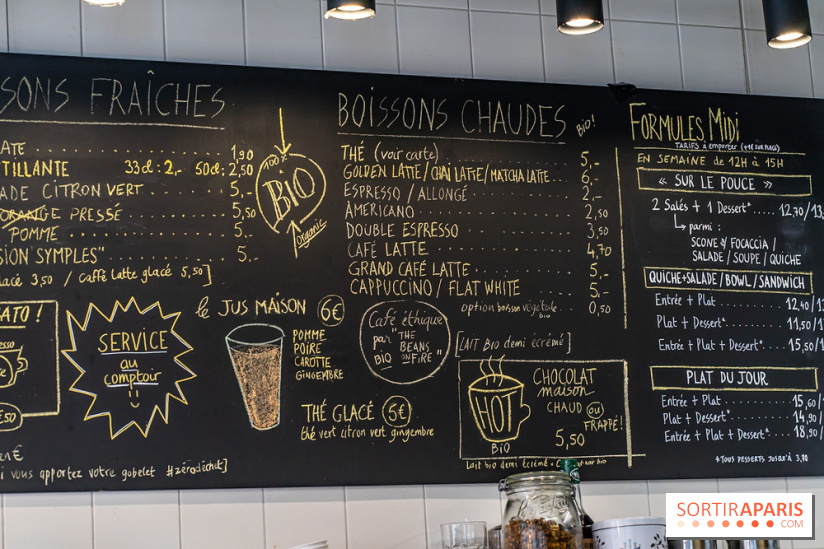 SONS FRAÎCHES
ATE ........ 1,90
TILLANTE 33cl : 2,- 50cl : 2,50
ADE CITRON VERT ........ 5,-
ORANGE PRESSÉ ........ 5,50
POMME ........ 5,-
SION SYMPLES" ........ 5,-
lacé 3,50 / Caffè Latte glacé 5,50]
100%
BIO
organic
ATO !
SERVICE
au
comptoir
€50
le JUS MAISON 6€
POMME
POIRE
CAROTTE
GINGEMBRE
THÉ GLACÉ 5€
thé vert citron vert gingembre
i vous apportez votre gobelet #zérodéchet]
BOISSONS CHAUDES
BIO!
THÉ (voir carte) ........ 5,-
GOLDEN LATTE/CHAI LATTE/MATCHA LATTE ... 6,-
ESPRESSO / ALLONGÉ ........ 2,-
AMERICANO ........ 2,50
DOUBLE ESPRESSO ........ 3,50
CAFÉ LATTE ........ 4,70
GRAND CAFÉ LATTE ........ 5,-
CAPPUCCINO / FLAT WHITE ........ 5,-
option boisson végétale 0,50
bio
Café éthique
par "THE
BEANS
ON FIRE"
BIO
[LAIT BIO demi écrémé]
HOT
BIO
CHOCOLAT
maison
CHAUD ou
FRAPPÉ!
5,50
Lait bio demi écrémé
FORMULES MIDI
TARIFS à emporter
EN SEMAINE de 12H à 15H
« SUR LE POUCE »
2 Salés + 1 Dessert* .... 12,70/13,
parmi :
SCONE / FOCACCIA /
SALADE / SOUPE / QUICHE
QUICHE+SALADE/BOWL/SANDWICH
Entrée + Plat ........ 12,40/13
Plat + Dessert* ........ 11,50/1
Entrée + Plat + Dessert* .... 15,50/1
PLAT DU JOUR
Entrée + Plat ........ 15,60/
Plat + Dessert* ........ 14,90/
Entrée + Plat + Dessert* .... 18,90/
*TOUS DESSERTS JUSQU'À 3,90
SORTIRAPARIS
.COM